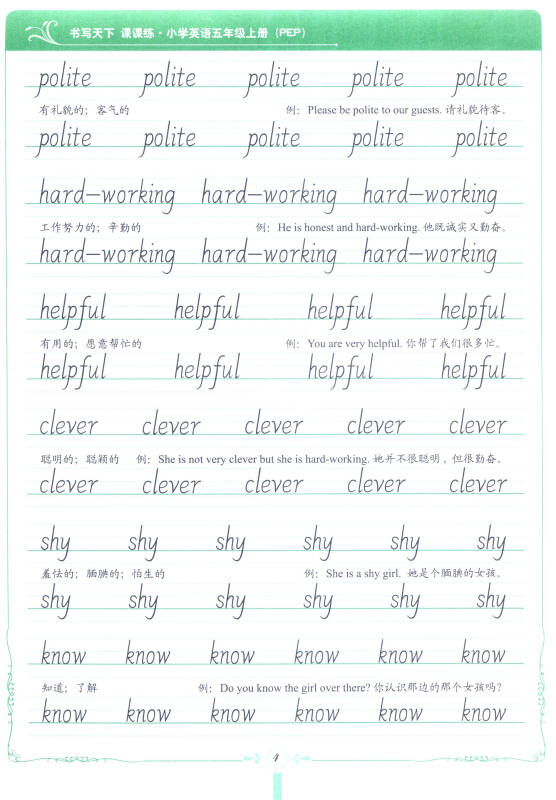 书写天下 课课练·小学英语五年级上册（PEP）
polite polite polite polite polite
有礼貌的；客气的 例：Please be polite to our guests. 请礼貌待客.
polite polite polite polite polite
hard-working hard-working hard-working
工作努力的；辛勤的 例：He is honest and hard-working. 他既诚实又勤奋。
hard-working hard-working hard-working
helpful helpful helpful helpful
有用的；愿意帮忙的 例：You are very helpful. 你帮了我们很多忙。
helpful helpful helpful helpful
clever clever clever clever clever
聪明的；聪颖的 例：She is not very clever but she is hard-working. 她并不很聪明，但很勤奋。
clever clever clever clever clever
shy shy shy shy shy shy
羞怯的；腼腆的；怕生的 例：She is a shy girl. 她是个腼腆的女孩。
shy shy shy shy shy shy
know know know know know know
知道；了解 例：Do you know the girl over there? 你认识那边的那个女孩吗?
know know know know know know
4